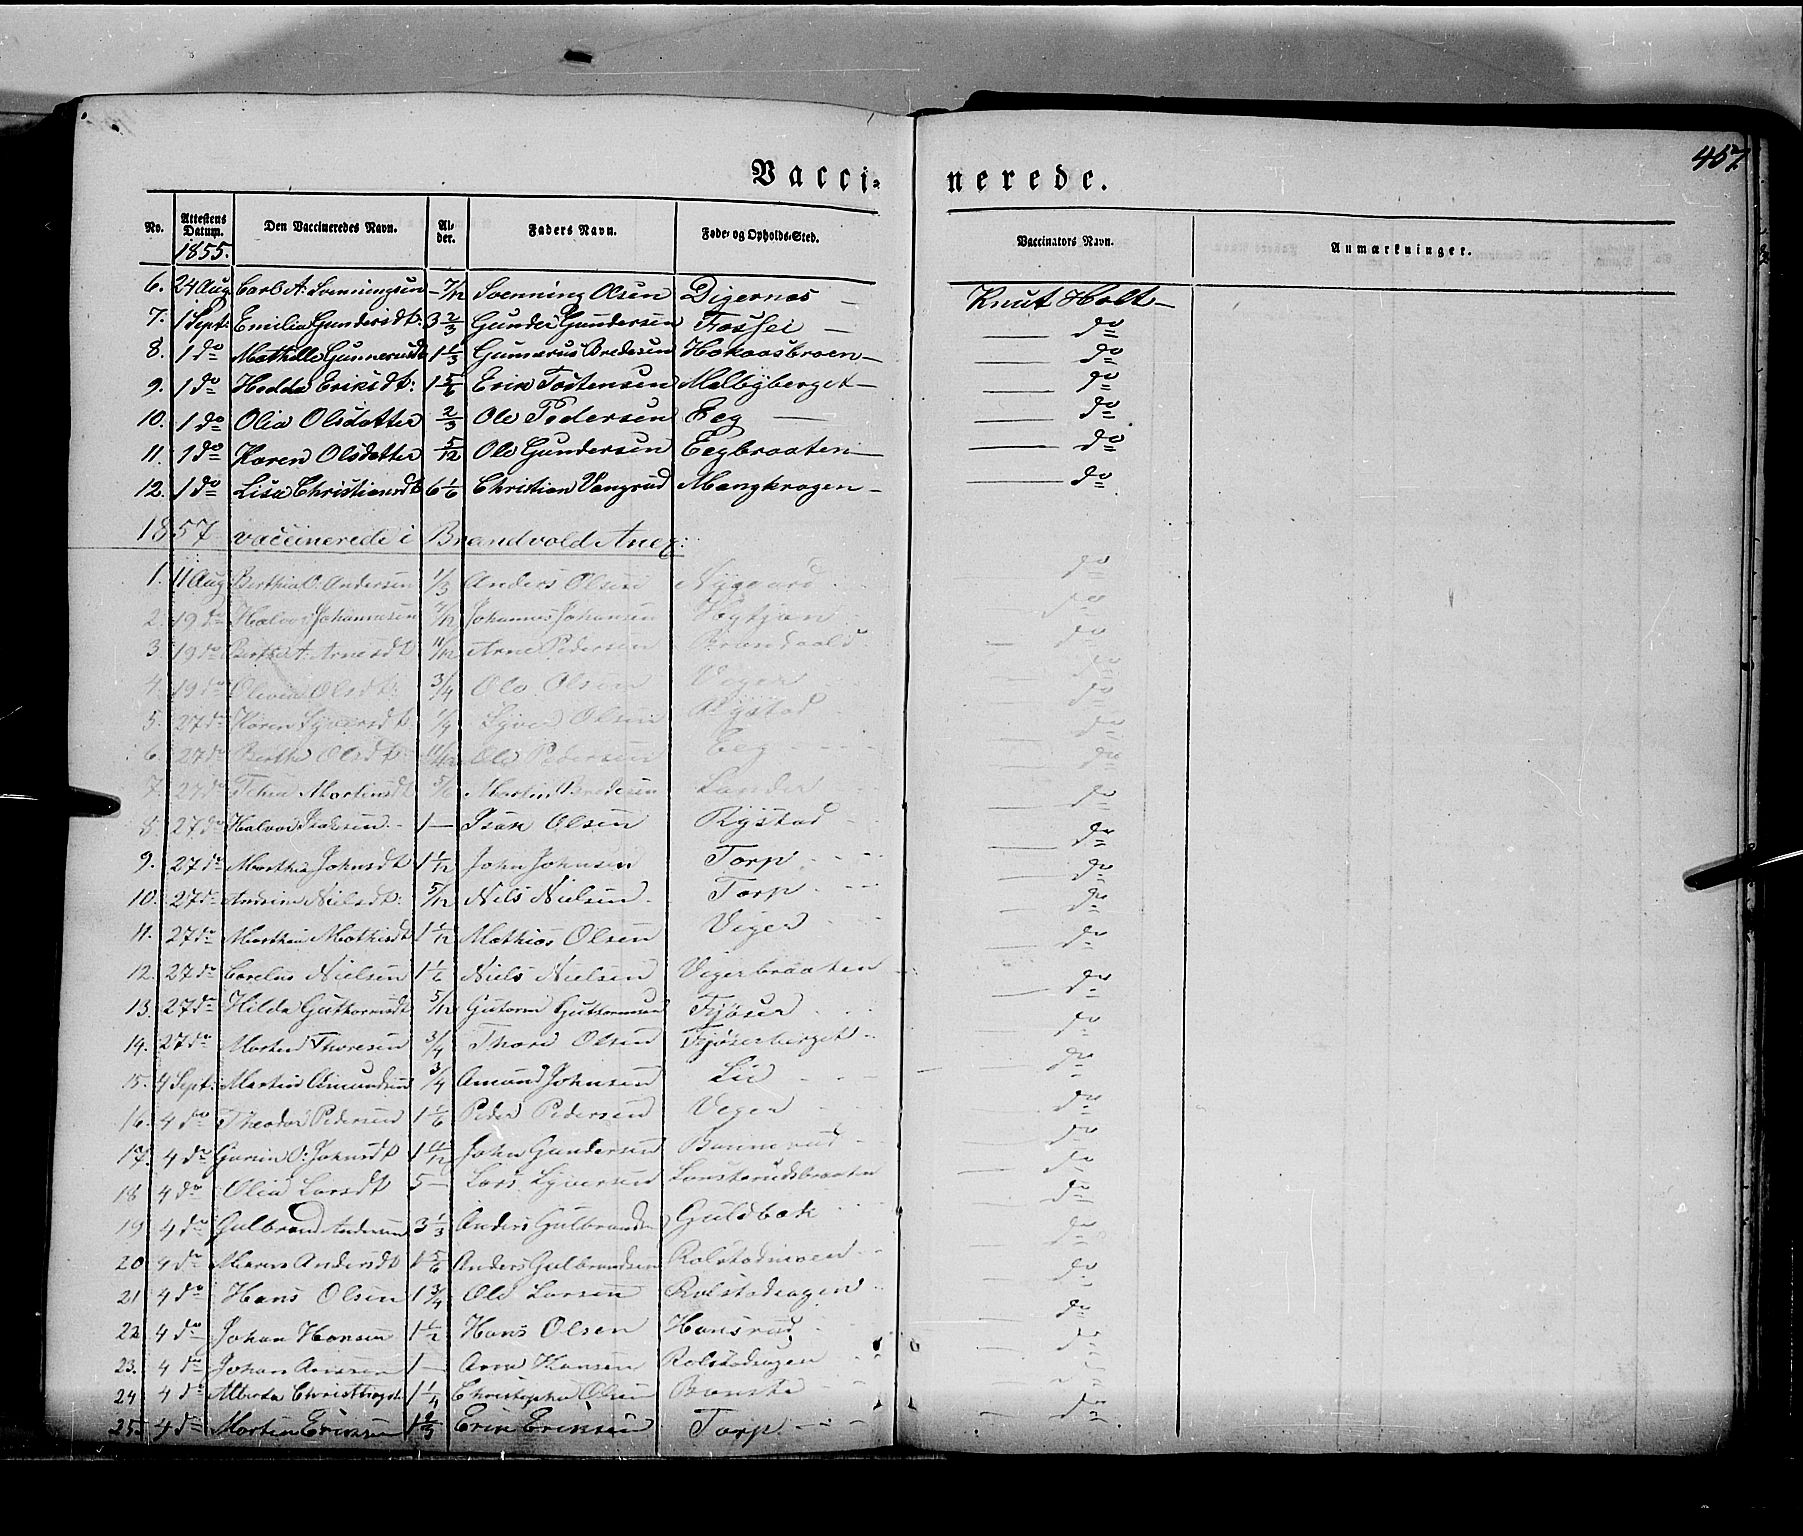 457
Vacci-nerede.
No. Attestens Datum. Den Vaccineredes Navn. Al-der. Faders Navn. Føde- og Opholds-Sted. Vaccinators Navn. Anmærkninger.
1855.
6. 24 Aug Carl A: Svenningsen - 7/12 Svenning Olsen Digernæs - Knut Holt -
7. 1 Sept: Emilia Gundersdt: 3 2/3 Gunder Gundersen Fossei - — do
8. 1 do Mathilde Gunnerusdt 1 1/3 Gunnerus Bredesen Hokaasbraen - — do
9. 1 do Hedda Eriksdt: 1 5/6 Erik Tostensen Melbyberget - — do
10. 1 do Olia Olsdatter 2/3 Ole Pedersen Eeg — — do
11. 1 do Karen Olsdatter 5/12 Ole Gundersen Eegbraaten — — do
12. 1 do Lisa Christiansdt 6 1/6 Christian Vangrud Mangkrogen - — do
1857 vaccinerede i Brandvold Anex:
1. 11 Aug Berthia O: Andersen 1/3 Anders Olsen Nygaard do
2. 19 do Halvor Johannesen 7/12 Johannes Johansen do
3. 19 do Berthe A: Arnesdt 11/12 Arne Pedersen — do
4. 19 do Olivia Olsdt: 3/4 Ole Olsen Veger do
5. 27 do Karen Syversdt 1/4 Syver Olsen Rystad — do
6. 27 do Berthe Olsdt: 11/12 Ole Pedersen Eeg — do
7. 27 do Martinsdt 5/6 Martin Bredesen Lunder — do
8. 27 do Halvor Isaksen 1 — Isak Olsen Rystad — do
9. 27 do Marthia Johnsdt 1 1/12 John Johnsen Torp — do
10. 27 do Nielsdt: 5/12 Nils Nielsen Torp — do
11. 27 do Marthea Mathisdt 1 1/12 Mathias Olsen Veger — do
12. 27 do Carelius Nielsen 1 1/6 Niels Nielsen Vegerbraaten — do
13. 27 do Hilda Guthormsdt 5/12 Gutorm Guttormsen Fjøser — do
14. 27 do Morten Thoresen 3/4 Thore Olsen Fjøserberget — do
15. 4 Sept: Martin Amundsen 3/4 Amund Johnsen Lie — do
16. 4 do Theodor Pedersen 1 1/6 Peder Pedersen Veger — do
17. 4 do O: Johnsdt 1 11/12 John Gundersen — do
18 4 do Olia Larsdt 5 — Lars Syversen — do
19 4 do Gulbrand Andersen 3 1/3 Anders Gulbrandsen Guldbæk — do
20 4 do Maren Andersdt 1 5/6 Anders Gulbrandsen Rolstadmoen — do
21 4 do Hans Olsen 1 3/4 Ole Larsen Rolstadeagen — do
22 4 do Johan Hansen 1 1/2 Hans Olsen Hansrud — do
23. 4 do Johan Arnesen 1 — Arne Hansen Rolstadeagen — do
24 4 do Alberta Christophsdt 1 1/4 Christopher Olsen
25. 4 do Morten Eriksen 1 2/3 Erik Eriksen Torp — do